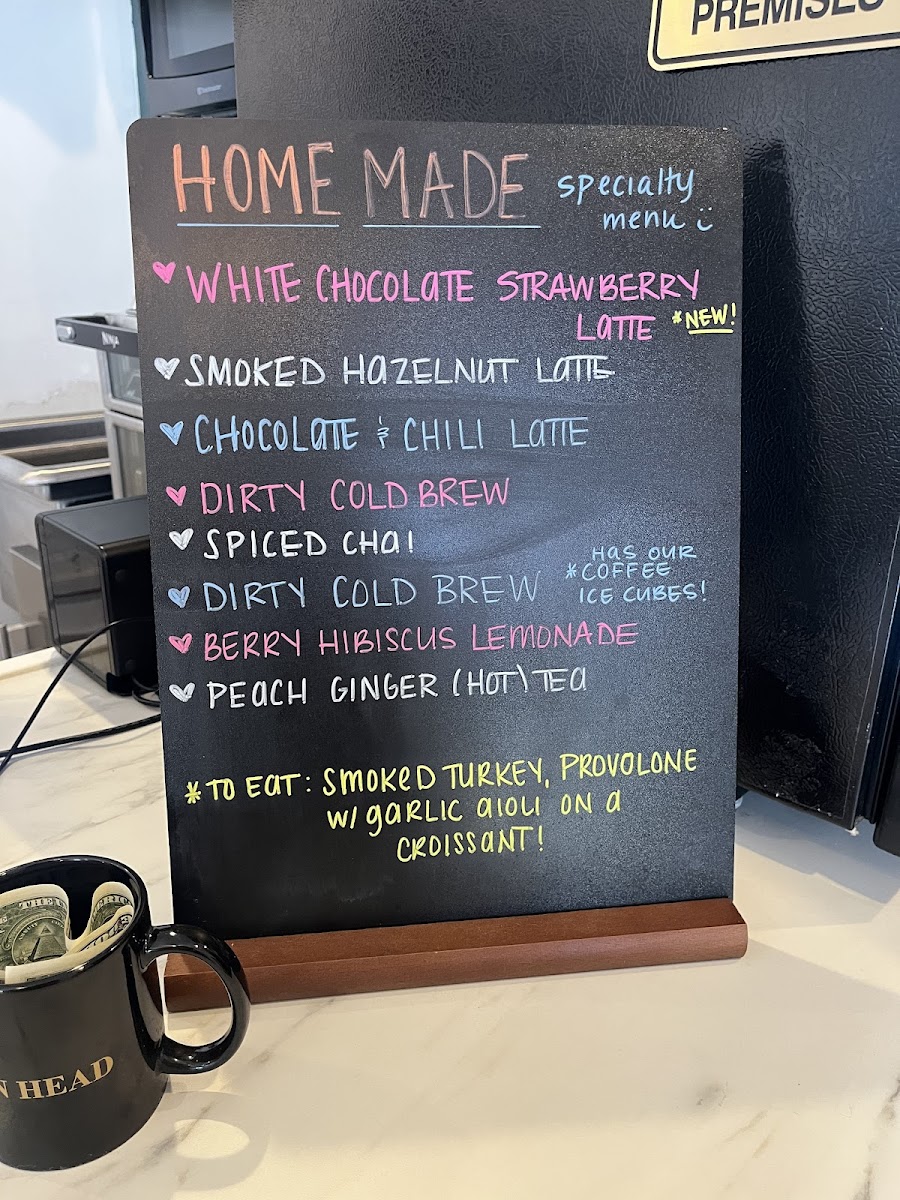 PREMISES
HOME MADE specialty
menu
WHITE CHOCOLATE STRAWBERRY
LATTE *NEW!
SMOKED HAZELNUT LATTE
CHOCOLATE & CHILI LATTE
DIRTY COLD BREW
SPICED CHAI
DIRTY COLD BREW
HAS OUR
*COFFEE
ICE CUBES!
BERRY HIBISCUS LEMONADE
PEACH GINGER (HOT) TEA
*TO EAT: SMOKED TURKEY, PROVOLONE
W/ GARLIC AIOLI ON A
CROISSANT!
Ninja
N HEAD